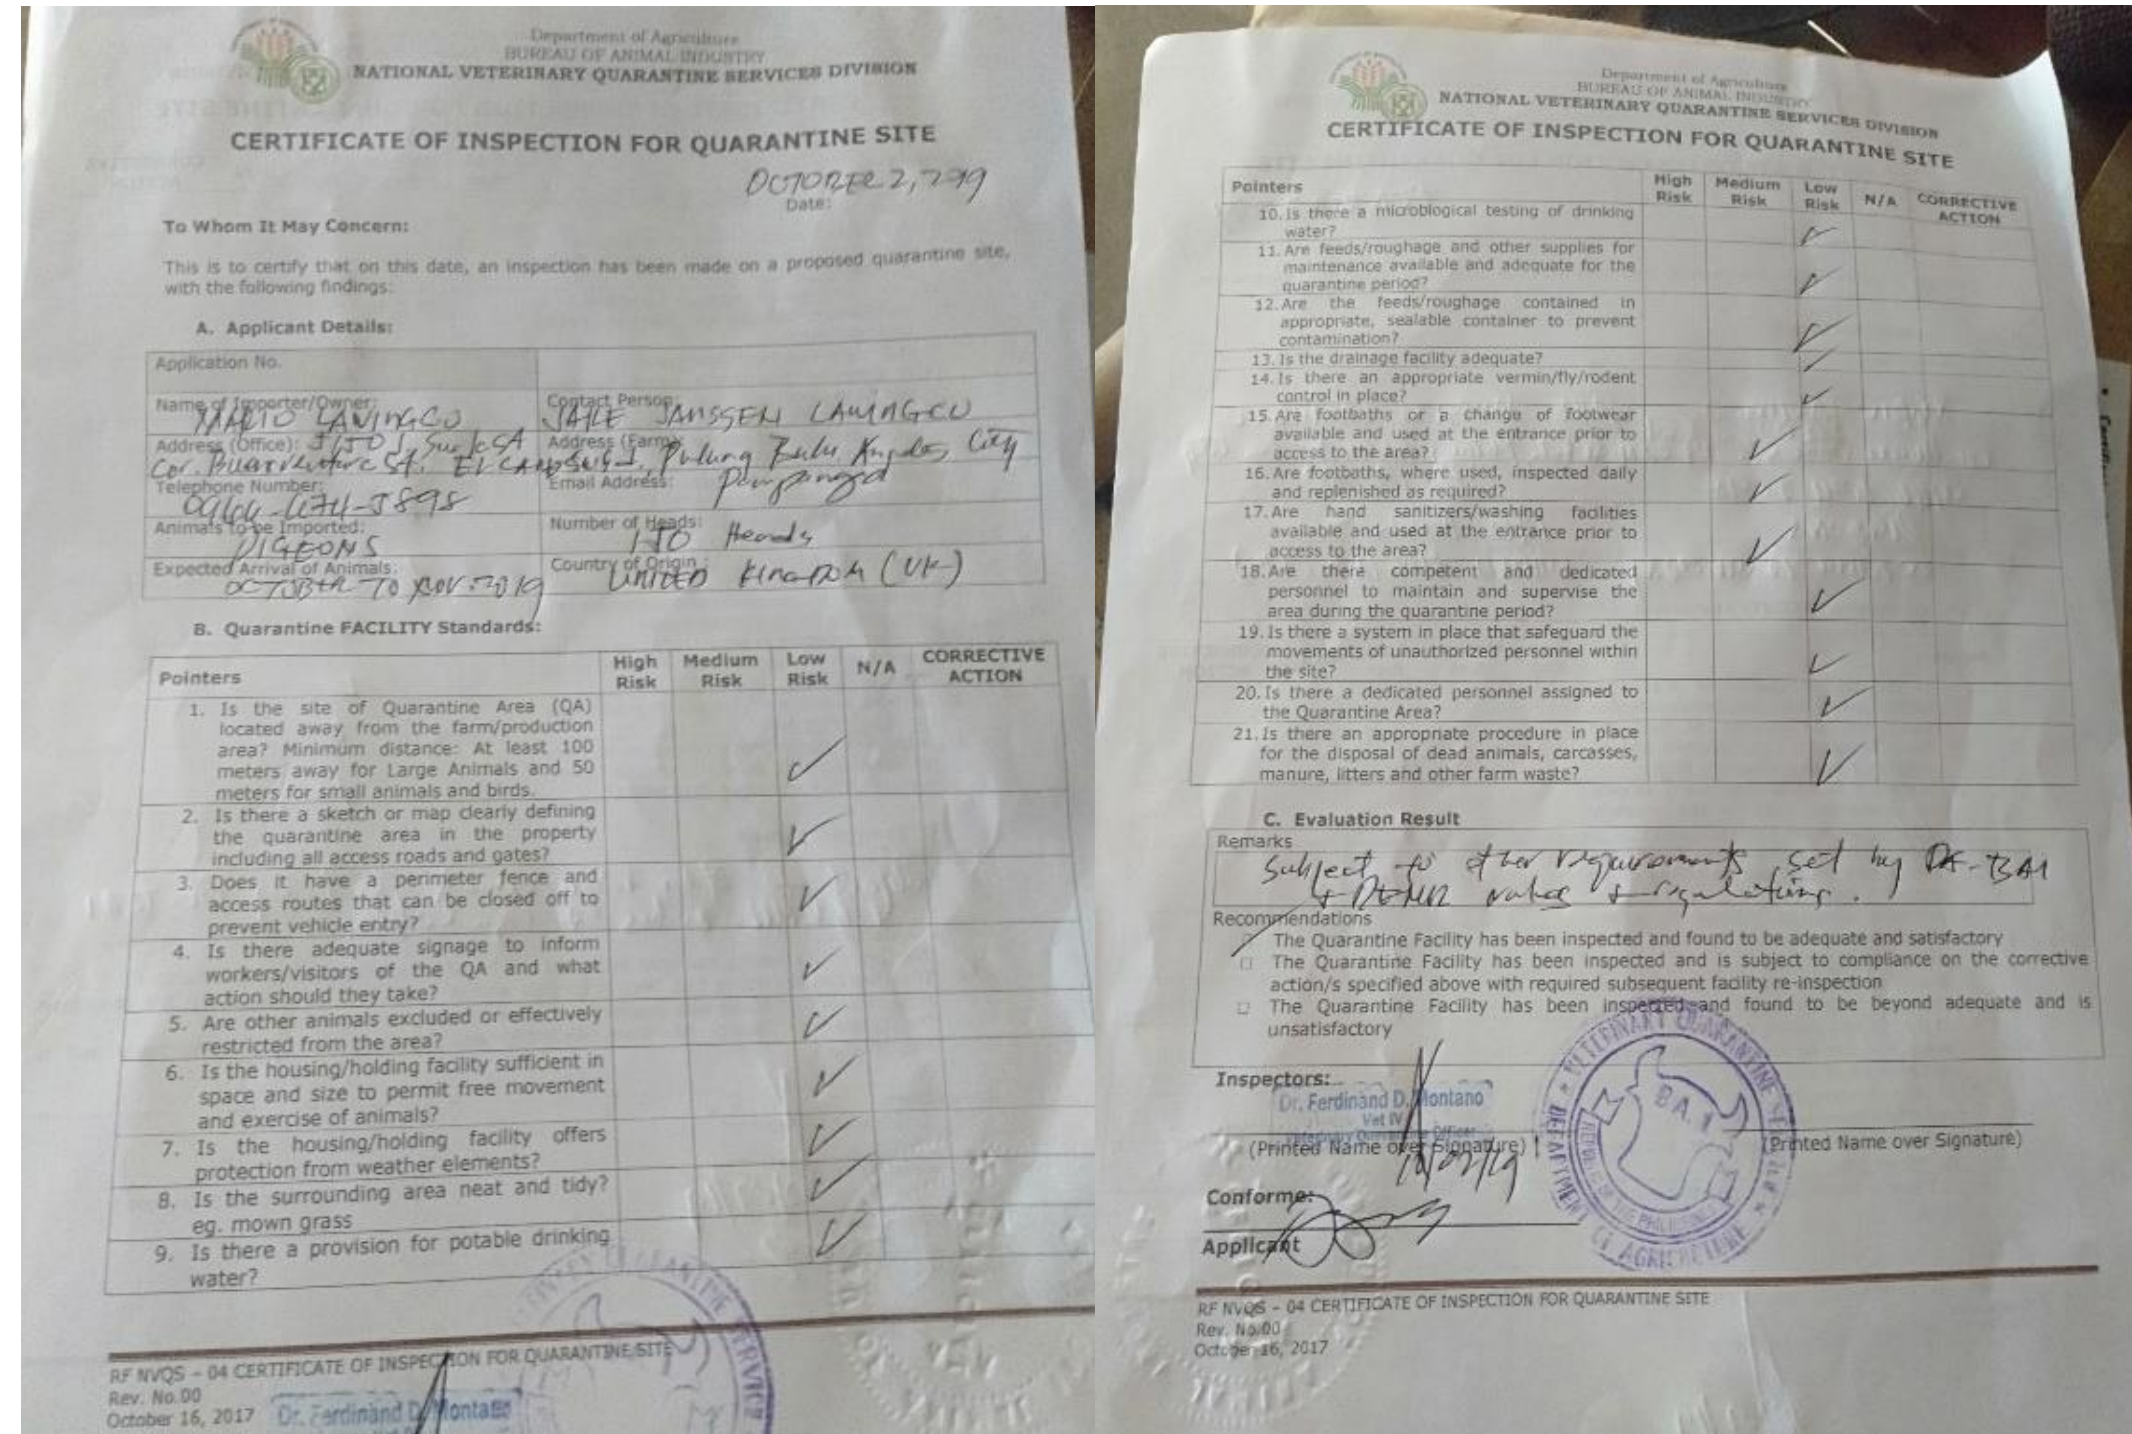 Department of Agriculture
BUREAU OF ANIMAL INDUSTRY
NATIONAL VETERINARY QUARANTINE SERVICES DIVISION
CERTIFICATE OF INSPECTION FOR QUARANTINE SITE
OCTOBER 2,
Date:
To Whom It May Concern:
This is to certify that on this date, an inspection has been made on a proposed quarantine site,
with the following findings:
A. Applicant Details:
Application No.
Name of Importer/Owner: MARIO LANINGCO
Contact Person: JANSSEN
Address (Office):
Address (Farm): Pulung Bulu Angeles City
Cor. St.
Telephone Number:
Email Address: Pampanga
Animals to be Imported: PIGEONS
Number of Heads: 150 Heads
Expected Arrival of Animals: OCTOBER TO NOV. 2019
Country of Origin: UNITED KINGDOM (UK)
B. Quarantine FACILITY Standards:
Pointers High Risk Medium Risk Low Risk N/A CORRECTIVE ACTION
1. Is the site of Quarantine Area (QA)
located away from the farm/production
area? Minimum distance: At least 100
meters away for Large Animals and 50
meters for small animals and birds.
2. Is there a sketch or map clearly defining
the quarantine area in the property
including all access roads and gates?
3. Does it have a perimeter fence and
access routes that can be closed off to
prevent vehicle entry?
4. Is there adequate signage to inform
workers/visitors of the QA and what
action should they take?
5. Are other animals excluded or effectively
restricted from the area?
6. Is the housing/holding facility sufficient in
space and size to permit free movement
and exercise of animals?
7. Is the housing/holding facility offers
protection from weather elements?
8. Is the surrounding area neat and tidy?
eg. mown grass
9. Is there a provision for potable drinking
water?
RF NVQS - 04 CERTIFICATE OF INSPECTION FOR QUARANTINE SITE
Rev. No.00
October 16, 2017
Dr. Ferdinand D. Montano
Department of Agriculture
BUREAU OF ANIMAL INDUSTRY
NATIONAL VETERINARY QUARANTINE SERVICES DIVISION
CERTIFICATE OF INSPECTION FOR QUARANTINE SITE
Pointers High Risk Medium Risk Low Risk N/A CORRECTIVE ACTION
10. Is there a microblogical testing of drinking
water?
11. Are feeds/roughage and other supplies for
maintenance available and adequate for the
quarantine period?
12. Are the feeds/roughage contained in
appropriate, sealable container to prevent
contamination?
13. Is the drainage facility adequate?
14. Is there an appropriate vermin/fly/rodent
control in place?
15. Are footbaths or a change of footwear
available and used at the entrance prior to
access to the area?
16. Are footbaths, where used, inspected daily
and replenished as required?
17. Are hand sanitizers/washing facilities
available and used at the entrance prior to
access to the area?
18. Are there competent and dedicated
personnel to maintain and supervise the
area during the quarantine period?
19. Is there a system in place that safeguard the
movements of unauthorized personnel within
the site?
20. Is there a dedicated personnel assigned to
the Quarantine Area?
21. Is there an appropriate procedure in place
for the disposal of dead animals, carcasses,
manure, litters and other farm waste?
C. Evaluation Result
Remarks
Subject to other requirements set by DA-BAI
& DENR rules & regulations.
Recommendations
The Quarantine Facility has been inspected and found to be adequate and satisfactory
The Quarantine Facility has been inspected and is subject to compliance on the corrective
action/s specified above with required subsequent facility re-inspection
The Quarantine Facility has been inspected and found to be beyond adequate and is
unsatisfactory
Inspectors:
Dr. Ferdinand D. Montano
Vet IV
Veterinary Quarantine Officer
(Printed Name over Signature)
(Printed Name over Signature)
10/02/19
VETERINARY QUARANTINE SERVICE
B.A.I
REPUBLIC OF THE PHILIPPINES
DEPARTMENT OF AGRICULTURE
Conforme:
Applicant
RF NVQS - 04 CERTIFICATE OF INSPECTION FOR QUARANTINE SITE
Rev. No.00
October 16, 2017